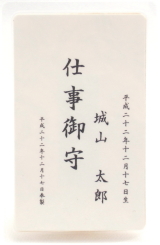 平成二十二年十二月十七日生
城山 太郎
仕事御守
平成二十二年十二月十七日奉製